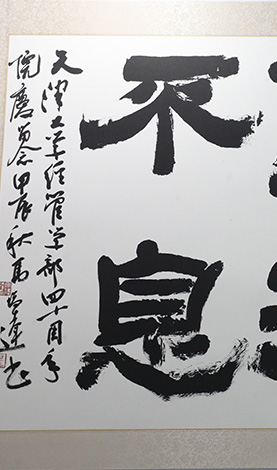 不息
天津大学经管学部四十周年
院庆留念甲辰秋马书